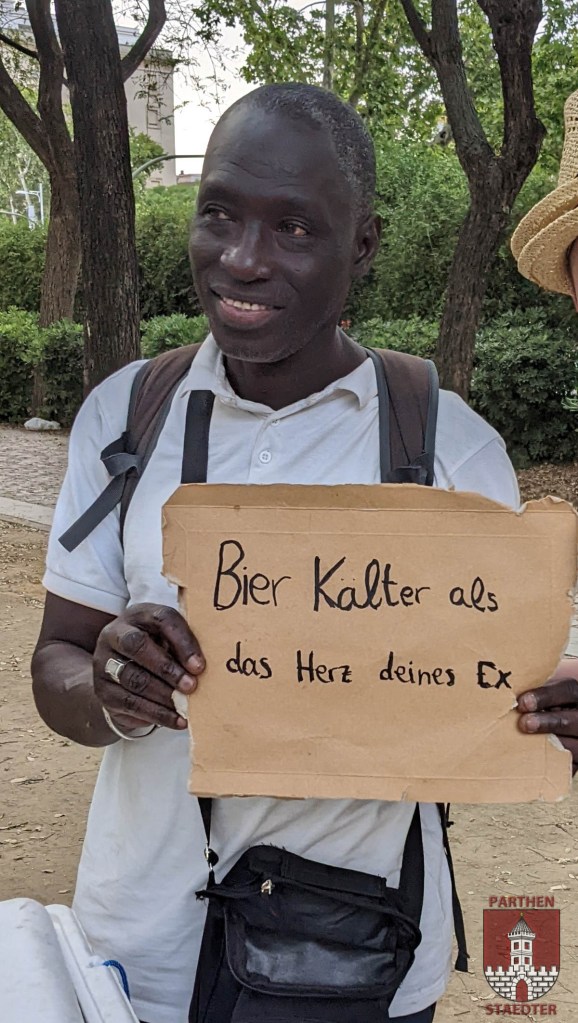 Bier Kälter als
das Herz deines Ex
PARTHEN
STAEDTER